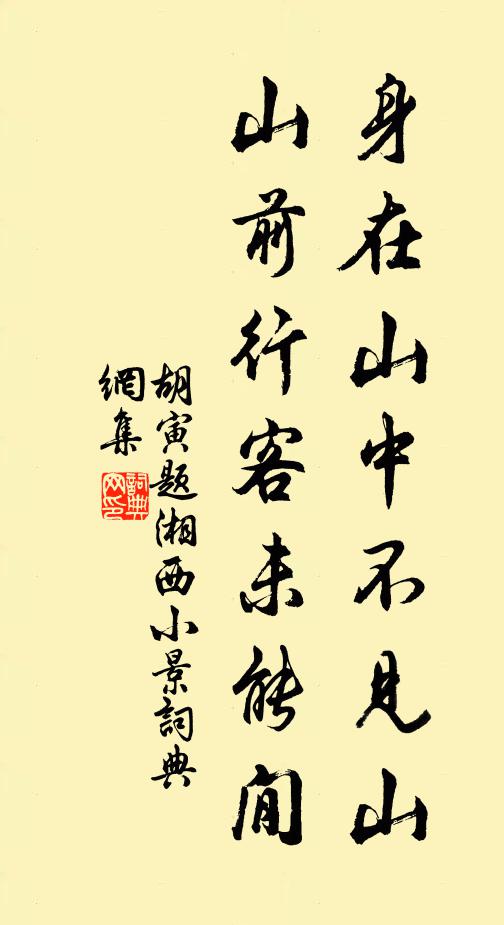 身在山中不見山
山前行客未能閒
胡寅題湘西小景詞典
網集
詞典
网印